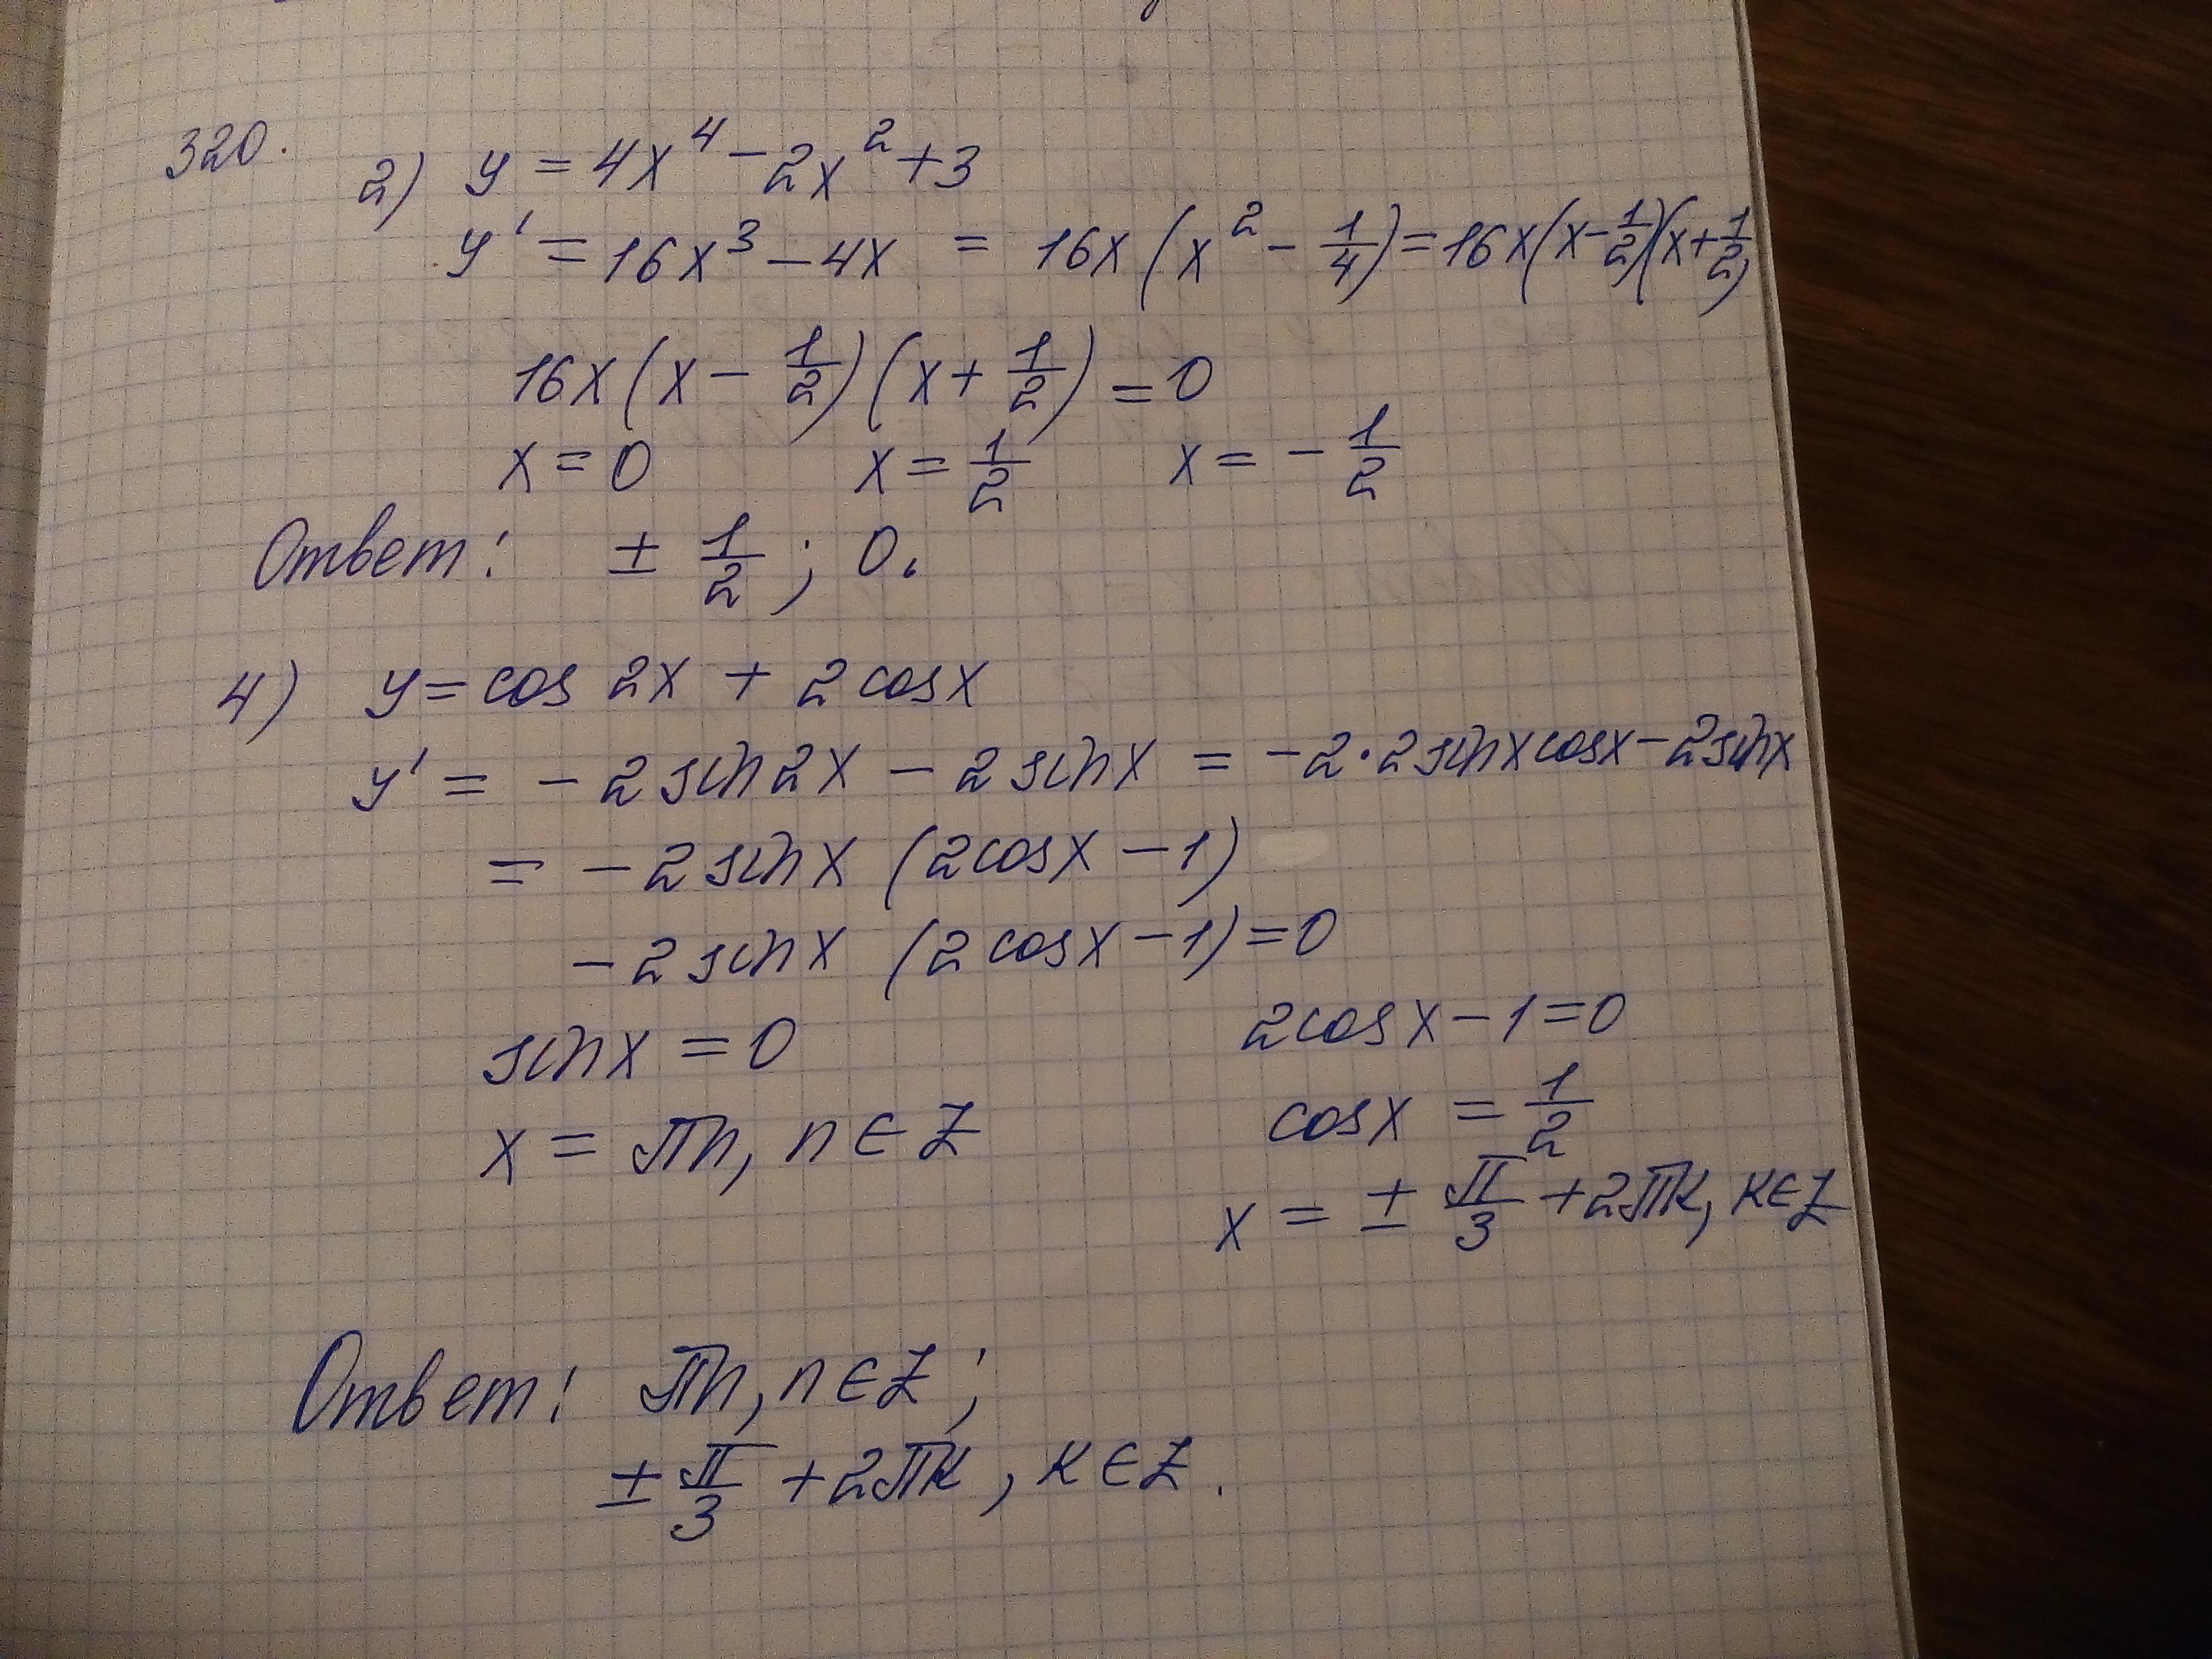 320.
2) y = 4x⁴ - 2x² + 3
y' = 16x³ - 4x = 16x(x² - 1/4) = 16x(x - 1/2)(x + 1/2)
16x(x - 1/2)(x + 1/2) = 0
x = 0 x = 1/2 x = - 1/2
Ответ: ± 1/2; 0.
4) y = cos 2x + 2 cos x
y' = - 2 sin 2x - 2 sin x = - 2 · 2 sin x cos x - 2 sin x
= - 2 sin x (2 cos x - 1)
- 2 sin x (2 cos x - 1) = 0
sin x = 0 2 cos x - 1 = 0
x = πn, n ∈ Z cos x = 1/2
x = ± π/3 + 2πk, k ∈ Z
Ответ: πn, n ∈ Z;
± π/3 + 2πk, k ∈ Z.